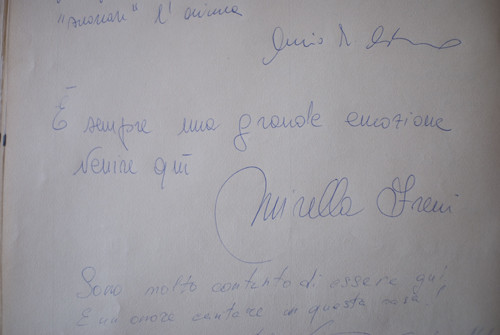 "suonare" l'anima
È sempre una grande emozione
venire qui
Mirella Freni
Sono molto contento di essere qui
E un onore cantare in questa casa!